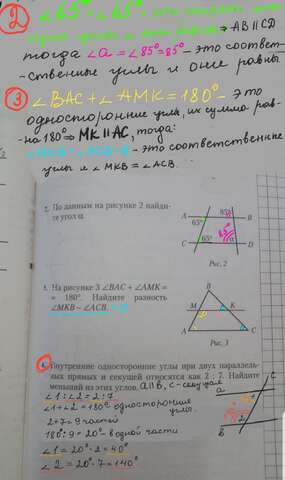 ② ∠65° = ∠65° - это соответ-
углы и они равны ⇒ AB ∥ CD
тогда ∠a = ∠85° = 85° - это соответ-
-ственные углы и они равны.
③ ∠BAC + ∠AMK = 180° - это
односторонние углы, их сумма рав-
на 180° ⇒ MK ∥ AC, тогда:
- это соответственные
углы и ∠MKB = ∠ACB.
2. По данным на рисунке 2 найди-
те угол α.
A 65° 85° B
65°
C 65° α D
Рис. 2
3. На рисунке 3 ∠BAC + ∠AMK =
= 180°. Найдите разность
∠MKB – ∠ACB.
B
M K
A C
Рис. 3
4. Внутренние односторонние углы при двух параллель-
ных прямых и секущей относятся как 2 : 7. Найдите
меньший из этих углов. a ∥ b, c - секущая
∠1 : ∠2 = 2 : 7
∠1 + ∠2 = 180° односторонние
углы.
2 + 7 = 9 частей
180° : 9 = 20° - в одной части
∠1 = 20° · 2 = 40°
∠2 = 20° · 7 = 140°
c
a